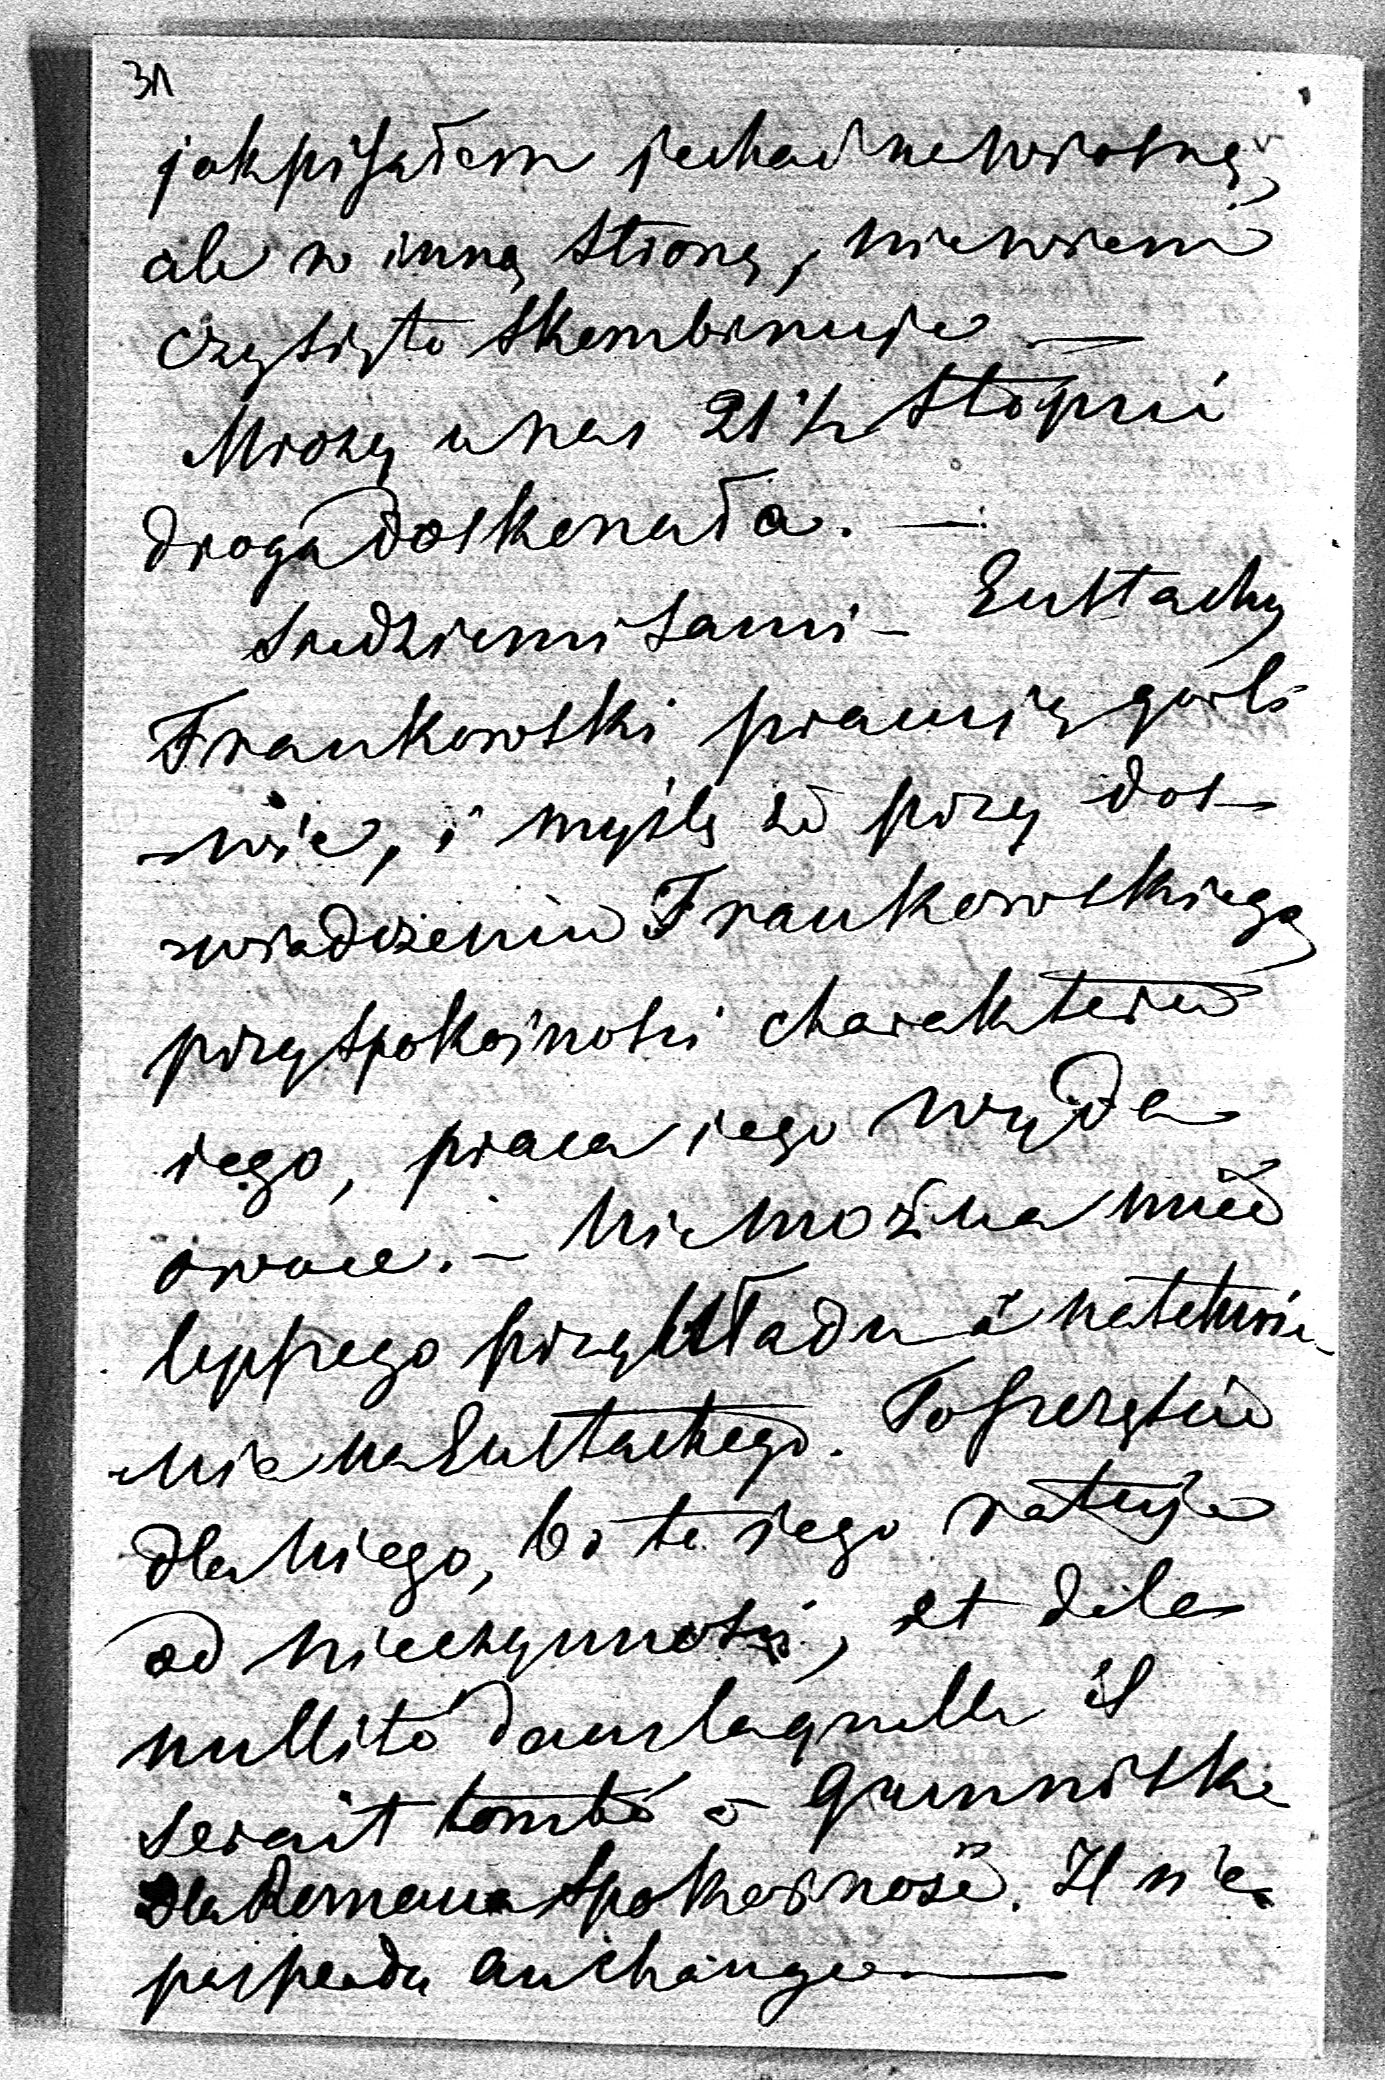 31
jak pisałem jechać na wiosnę,
ale w inną stronę, niewiem
czy się to skombinuje —
Mrozy u nas 21 1/2 stopni
droga doskonała. —
Siedziemi sami – Eustachy
Frankowski pracują gorli
-wie, i myślę że przy doś-
-wiadczeniu Frankowskiego
przy spokojności charakteru
iego, praca iego wyda
owoce. – Nie można mieć
lepszego przykładu i
nie na Eustachego. To szczęście
dla niego, bo to iego ratuje
od nieczynności, et de la
nullité dans laquelle il
serait tombé –
dla Romana spokojność. Il n'a
pas perdu au change —